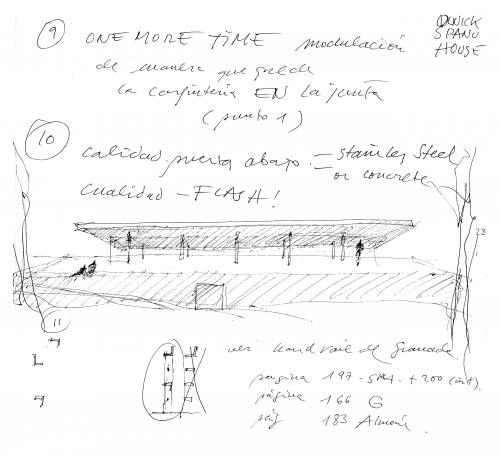 9 ONE MORE TIME modulación
de manera que quede
la carpintería EN La junta
(punto 1)
OLNICK
SPANU
HOUSE
10
calidad puerta abajo = stainless Steel
or concrete
cualidad – FLASH!
23
11
ver handrail de Granada.
pagina 197 +200 (int).
página 166 G
pág 183 Almería